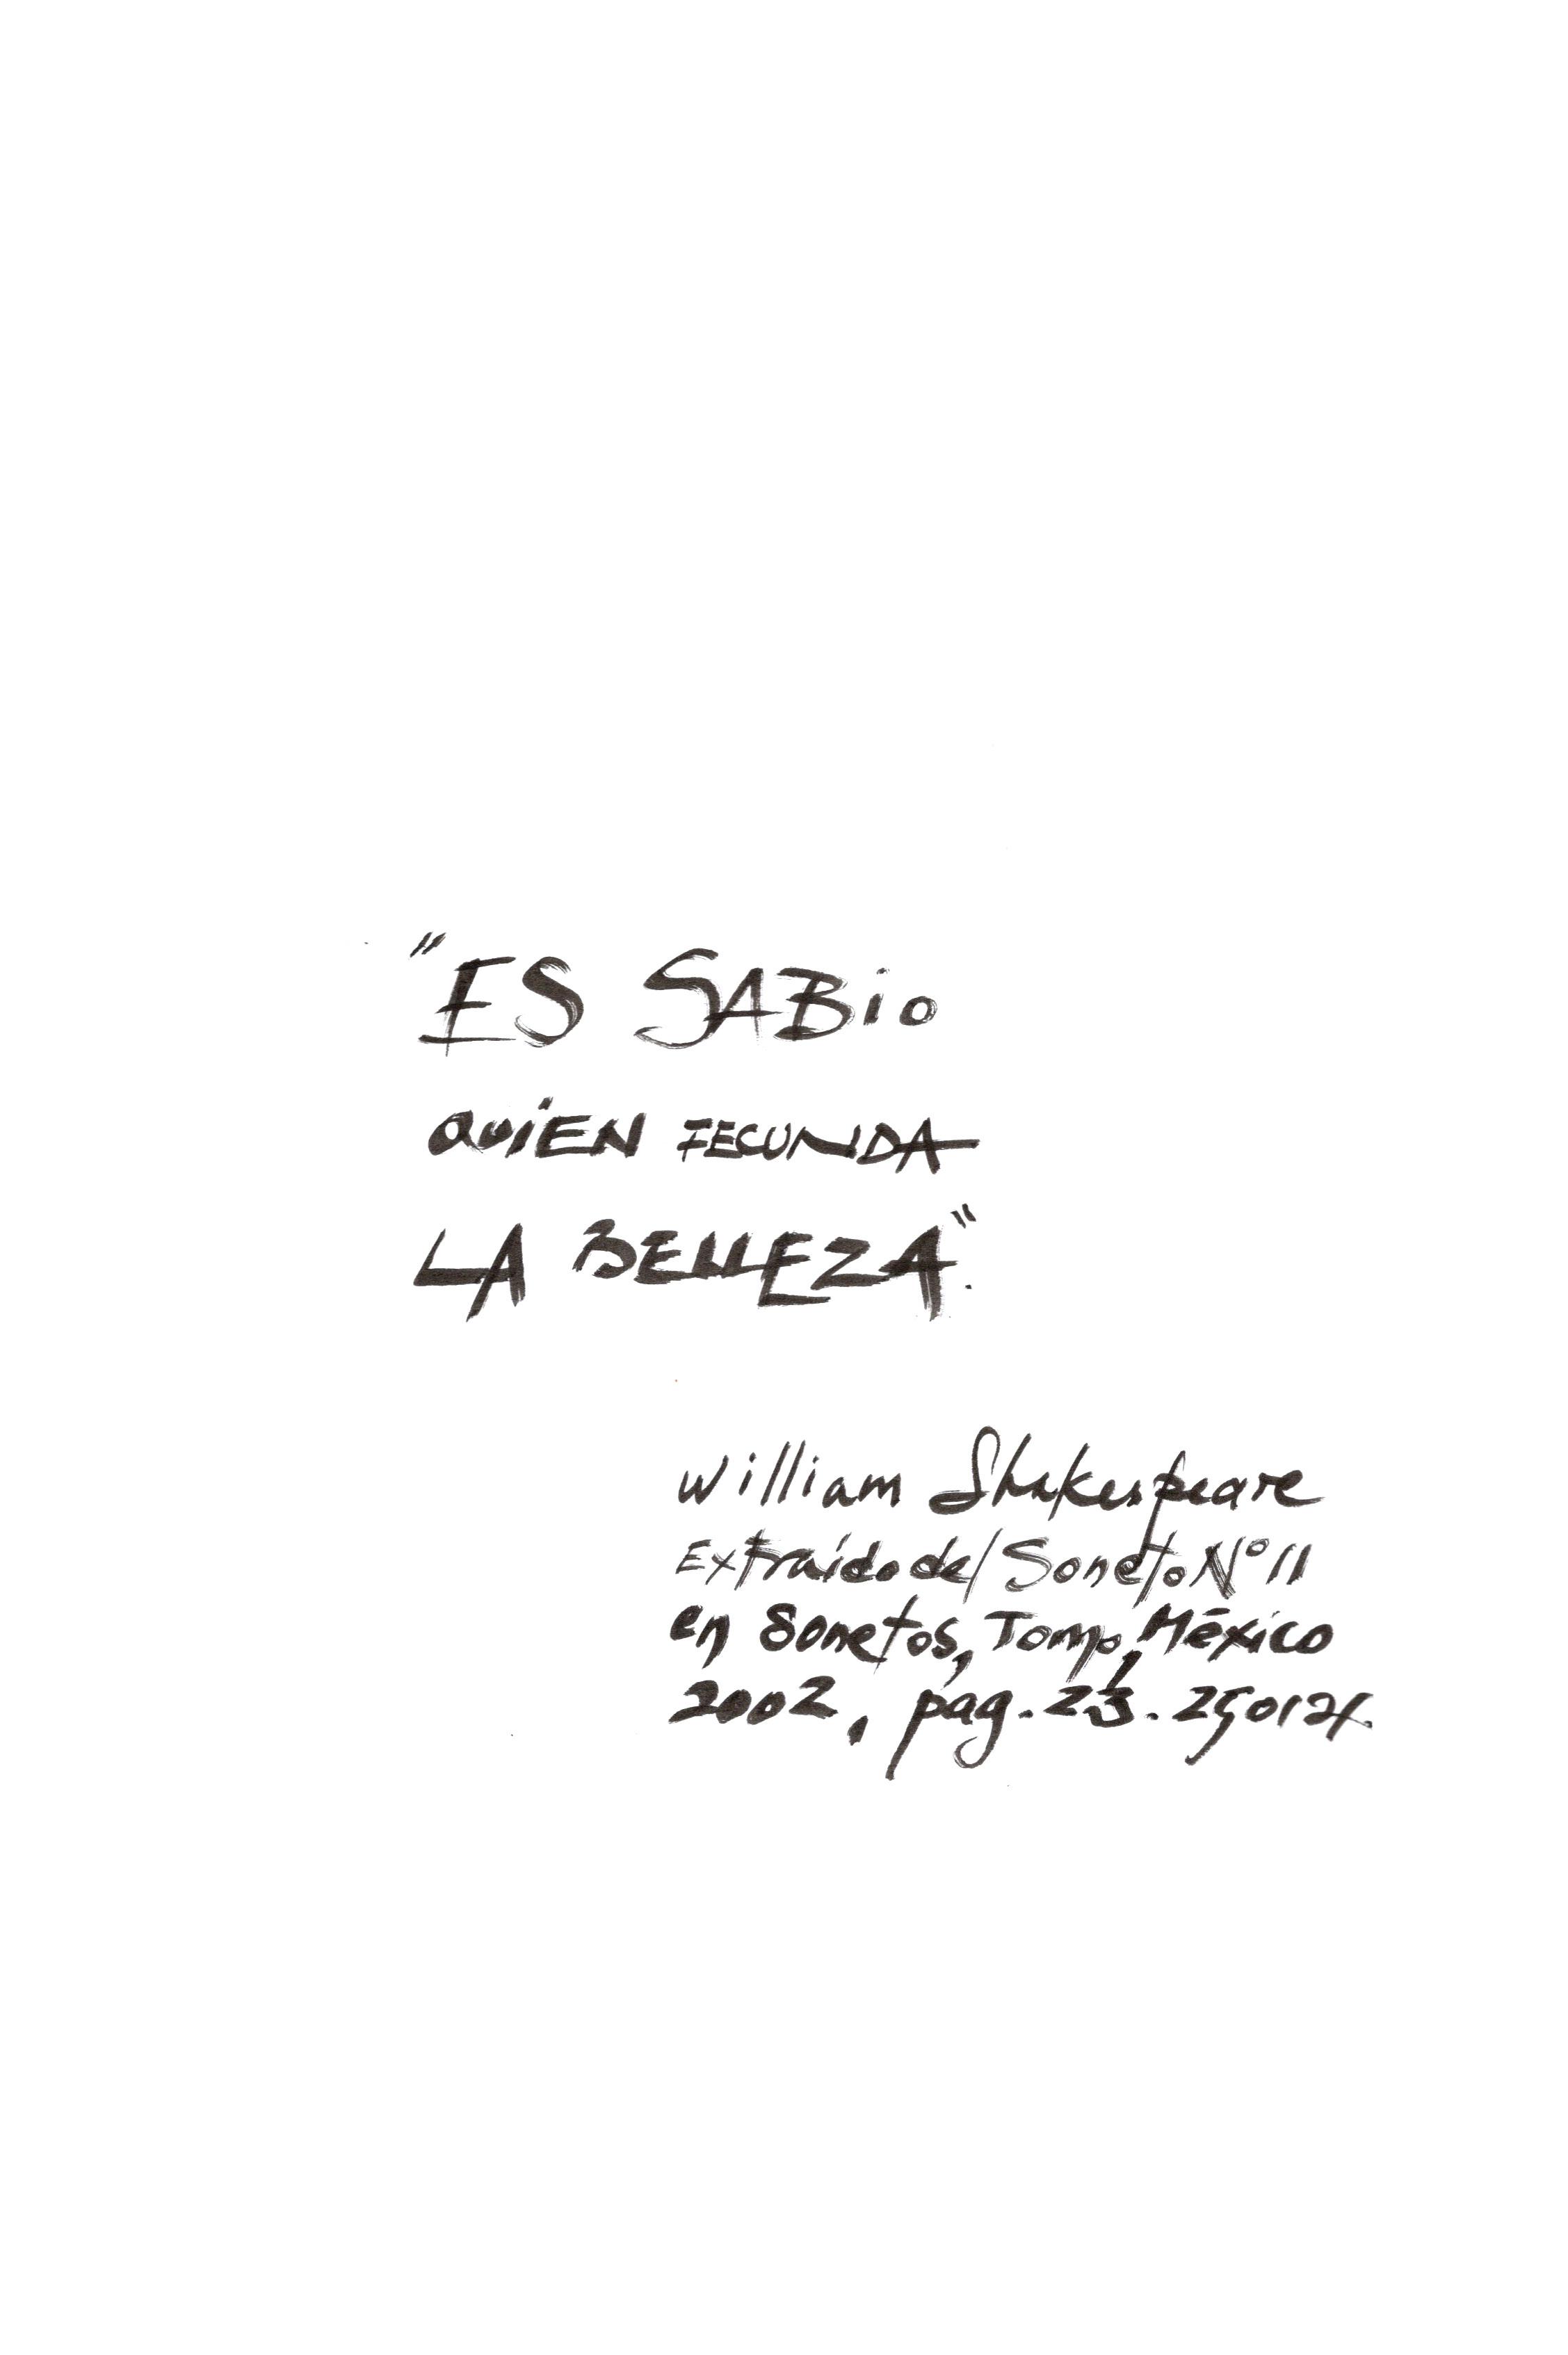 "ES SABio
QUiEN FECUNDA
LA BELLEZA".
William Shakespeare
Extraído del Soneto Nº 11
en Sonetos, Tomo, México
2002, pág. 23.